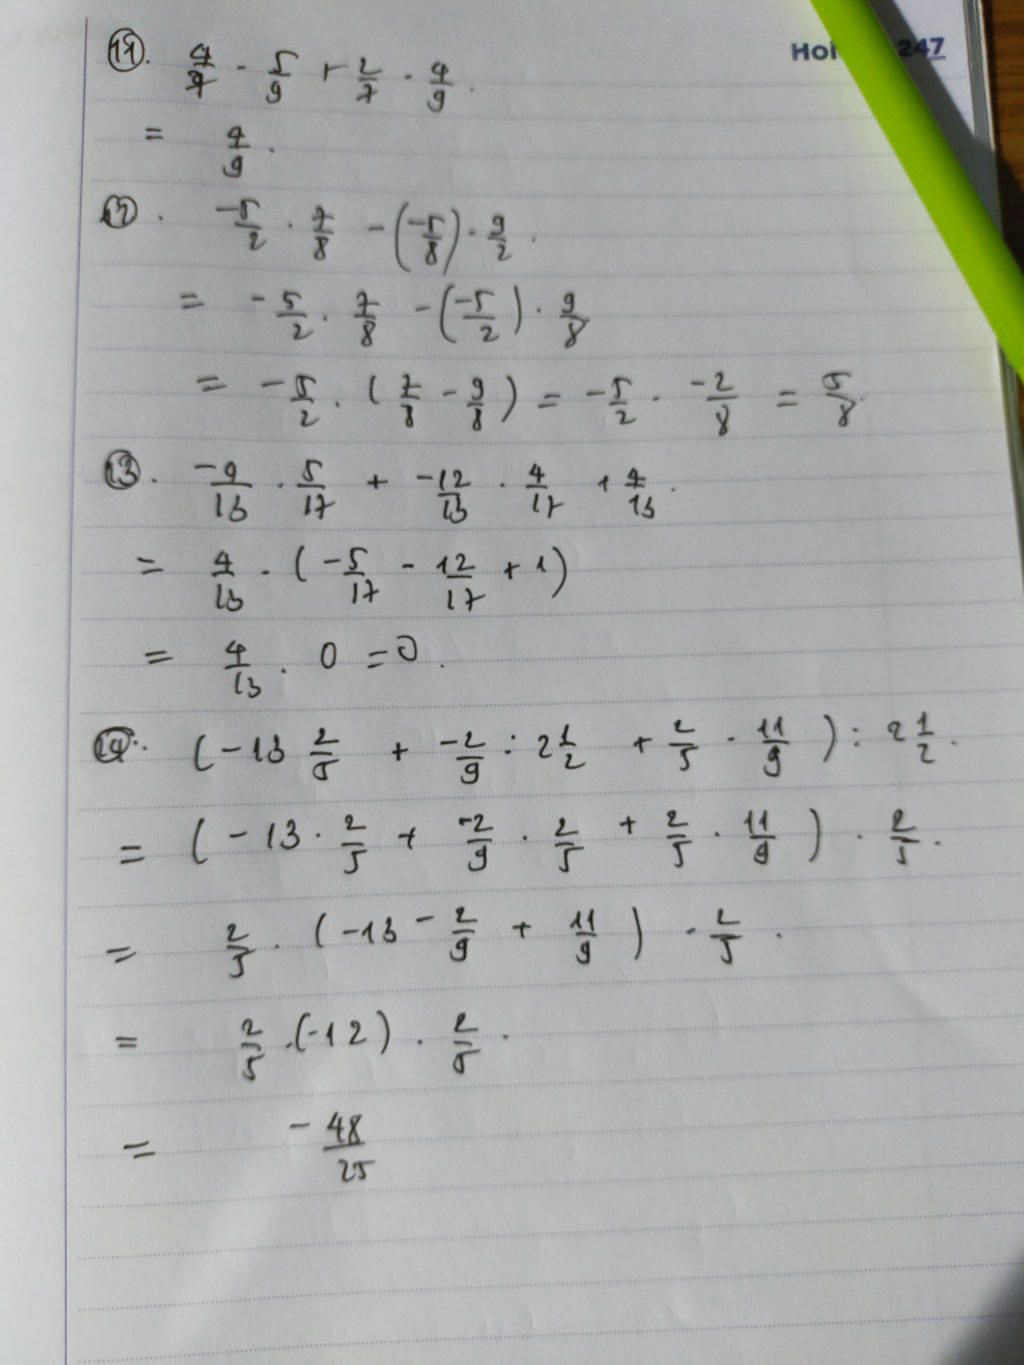 Hoi 247
11. 4/7 . 5/9 + 2/7 . 4/9.
= 4/9.
12. -5/2 . 7/8 - (-5/8) . 9/2.
= -5/2 . 7/8 - (-5/2) . 9/8
= -5/2 . (7/8 - 9/8) = -5/2 . -2/8 = 5/8.
13. 5/17 + -12/13 . 4/17 + 4/13.
= 4/13 . (-5/17 - 12/17 + 1)
= 4/13 . 0 = 0.
14. (-13 2/5 + -2/9 : 2 1/2 + 2/5 . 11/9) : 2 1/2.
= (-13 . 2/5 + -2/9 . 2/5 + 2/5 . 11/9) . 2/5.
= 2/5 . (-13 - 2/9 + 11/9) . 2/5.
= 2/5 . (-12) . 2/5.
= -48/25